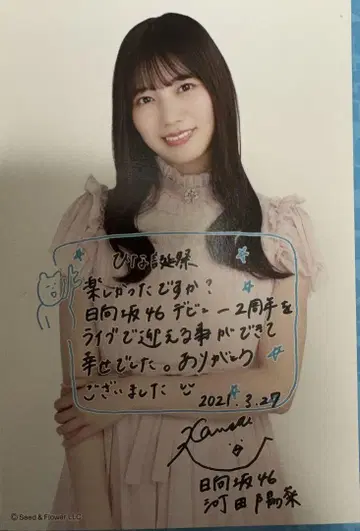 ひな誕祭
楽しかったですか?
日向坂46 デビュー2周年を
ライブで迎える事ができて
幸せでした。ありがとう
ございました
2021.3.27
Kawata
日向坂46
河田陽菜
© Seed & Flower LLC